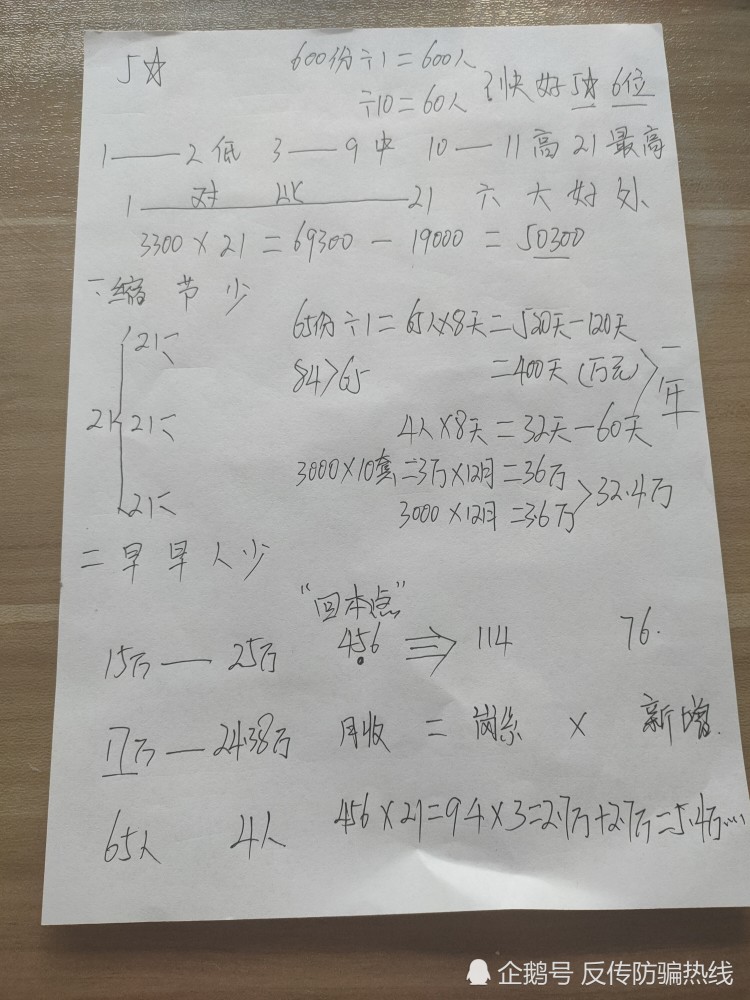 5☆ 600份÷1=600人
÷10=60人 引快好5☆ 6位
1——2低 3——9中 10—11高 21最高
1——对比——21 六大好处
3300×21=69300-19000=50300
一缩节少
21 21 21 21
65份÷1=65人×8天=520天-120天
84>65 =400天(万元) 一年
4人×8天=32天-60天
3000×10套=3万×12月=36万
3000×12月=3.6万 >32.4万
二早早人少
"回本点"
15万——25万 456⇒114 76.
17万——24.38万 月收=岗系×新增.
65人 4人 456×21=94×3=2.7万+2.7万=5.4万……
企鹅号 反传防骗热线